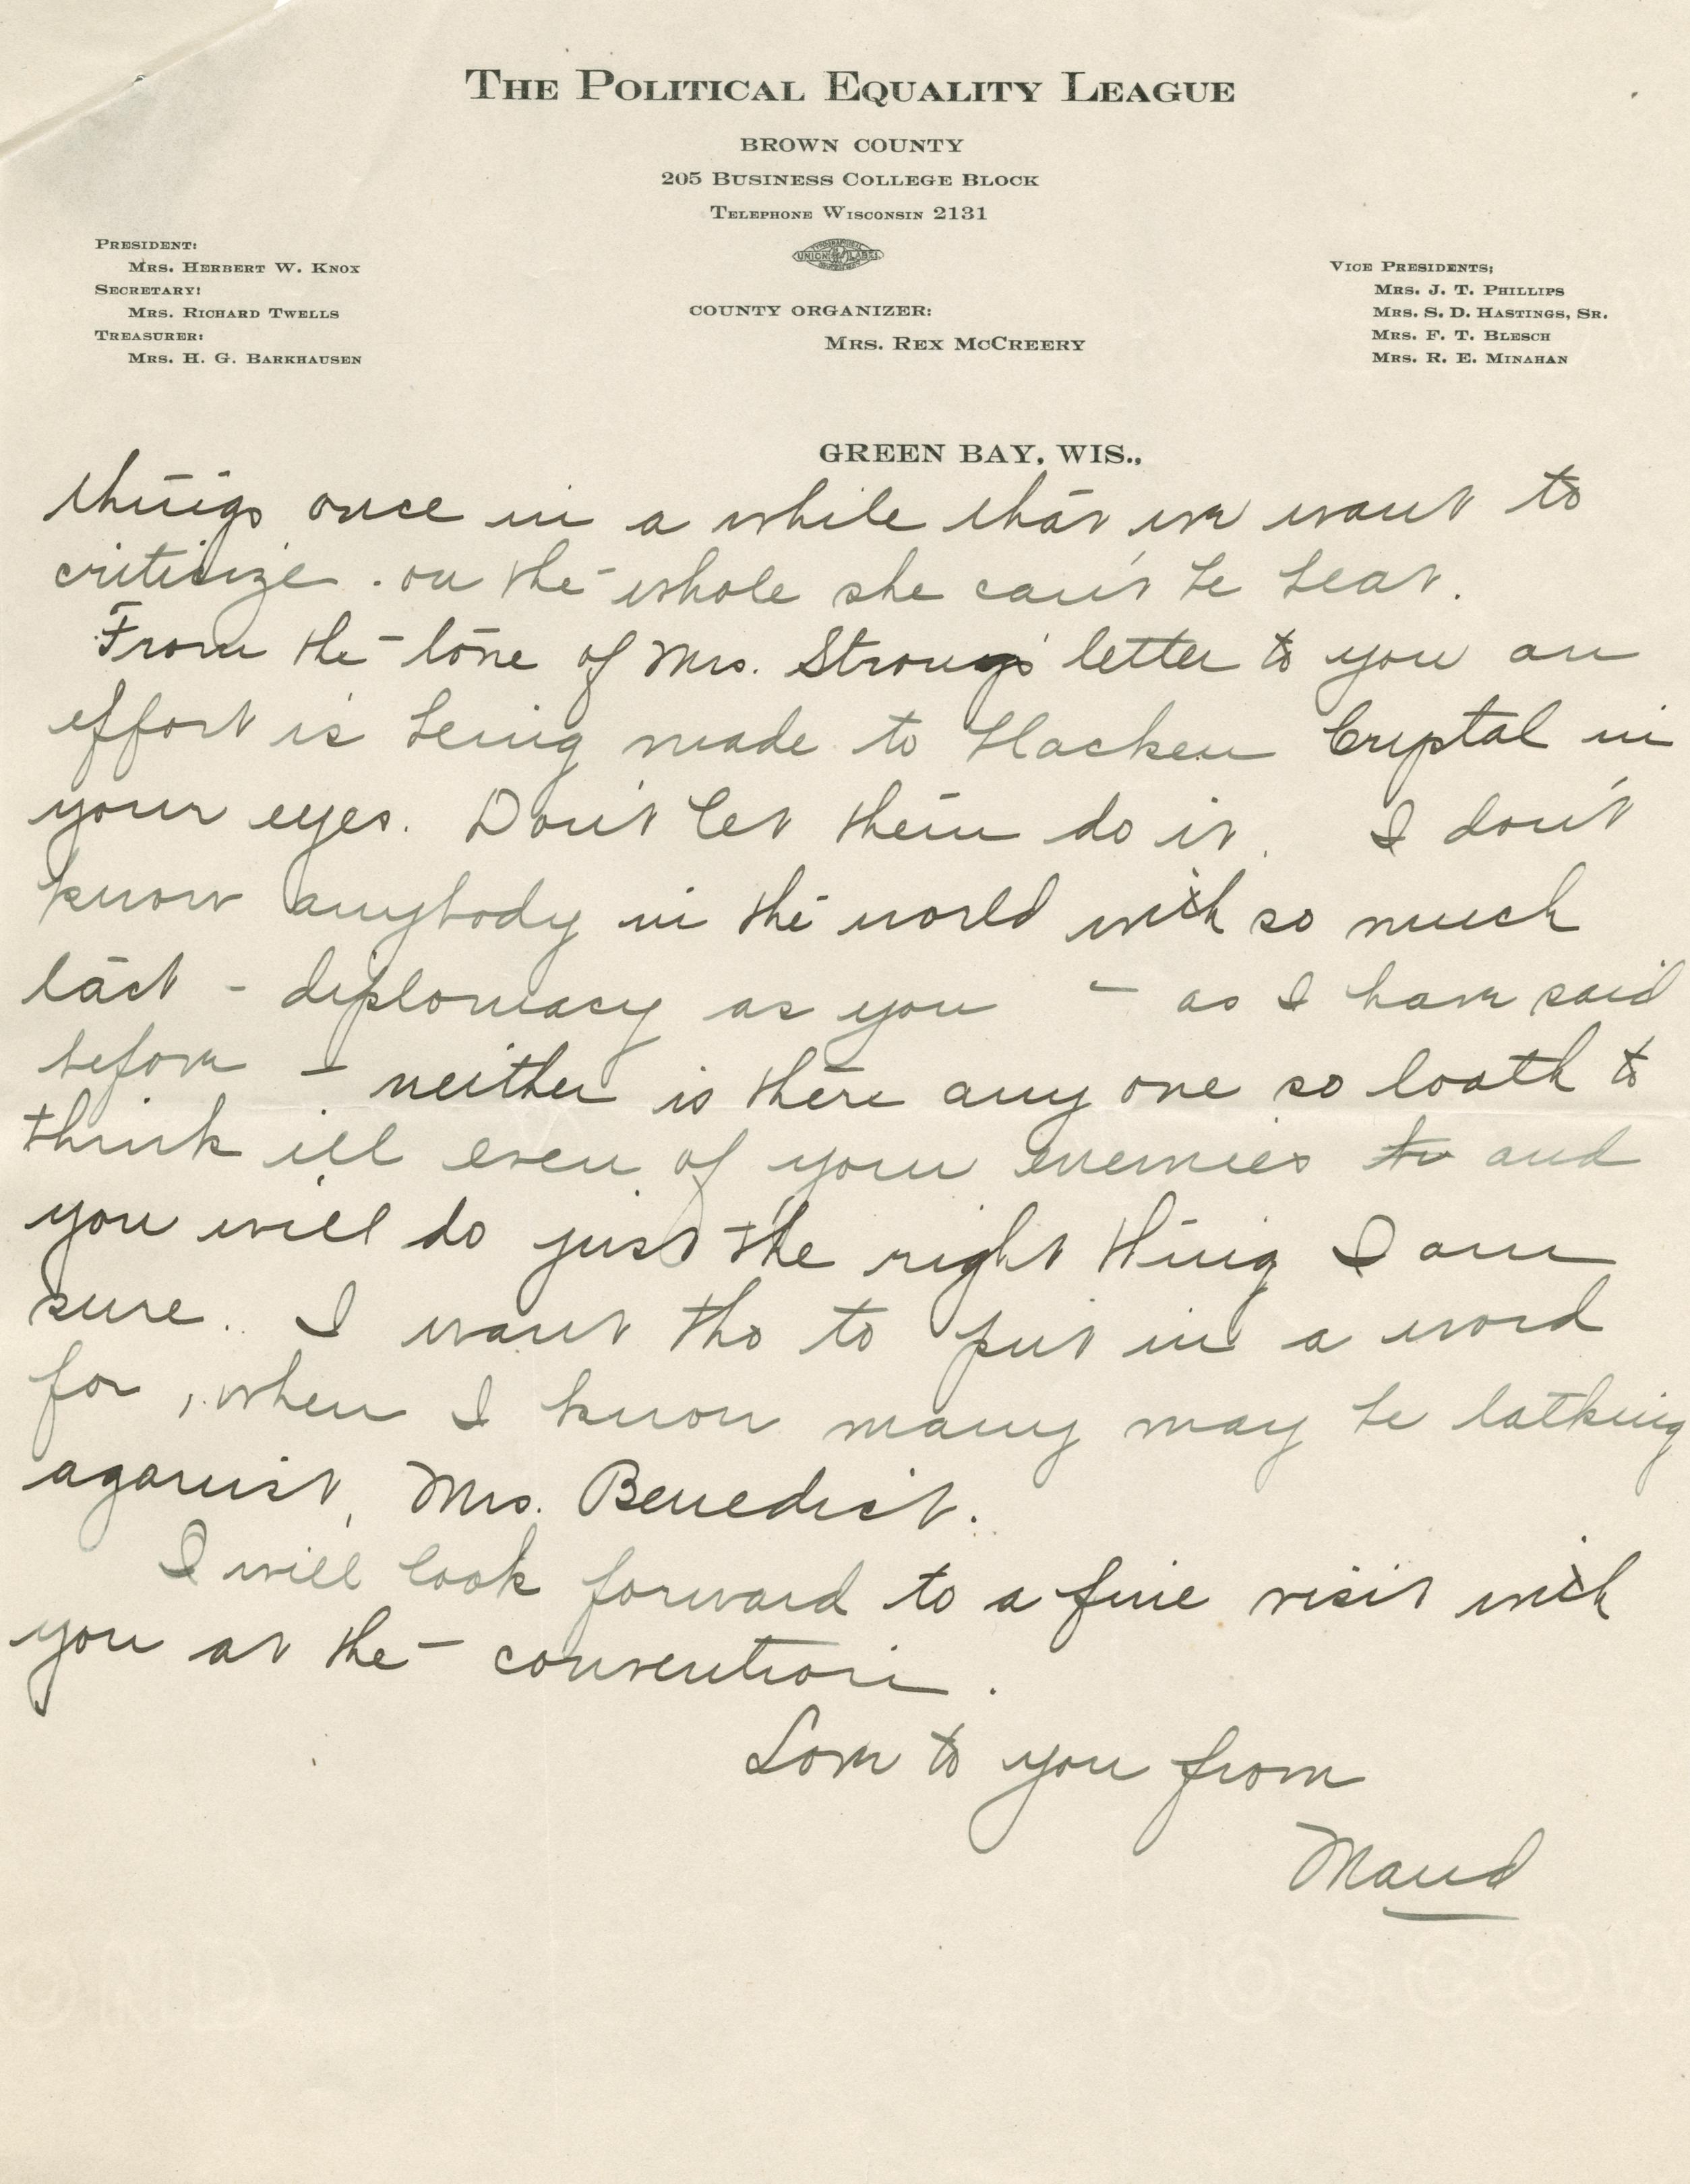 THE POLITICAL EQUALITY LEAGUE
BROWN COUNTY
205 BUSINESS COLLEGE BLOCK
TELEPHONE WISCONSIN 2131
PRESIDENT:
MRS. HERBERT W. KNOX
SECRETARY:
MRS. RICHARD TWELLS
TREASURER:
MRS. H. G. BARKHAUSEN
UNION LABEL
COUNTY ORGANIZER:
MRS. REX MCCREERY
VICE PRESIDENTS;
MRS. J. T. PHILLIPS
MRS. S. D. HASTINGS, SR.
MRS. F. T. BLESCH
MRS. R. E. MINAHAN
GREEN BAY, WIS.,
things once in a while that we want to
criticize. on the whole she can't be beat.
From the tone of Mrs. Strong's letter to you an
effort is being made to blacken Crystal in
your eyes. Don't let them do it. I don't
know anybody in the world with so much
tact - diplomacy as you - as I have said
before - neither is there any one so loath to
think ill even of your enemies to and
you will do just the right thing I am
sure. I want tho to put in a word
for, when I know many may be talking
against, Mrs. Benedict.
I will look forward to a fine visit with
you at the convention.
Love to you from
Maud